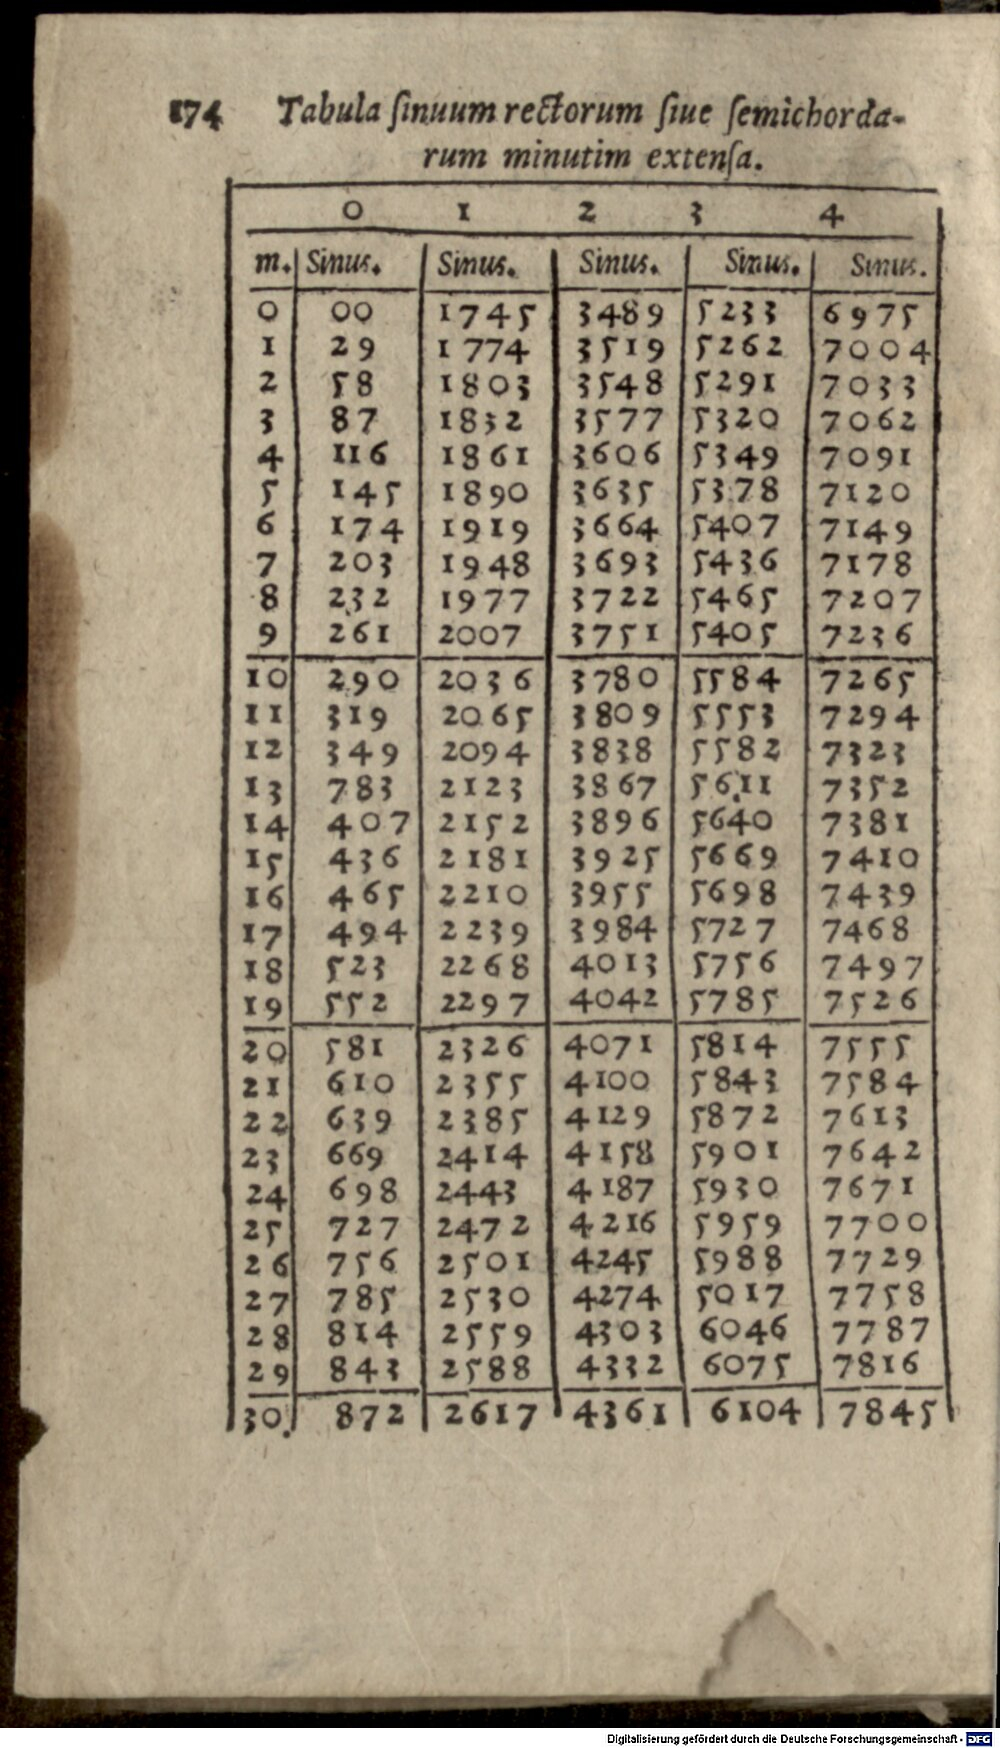 174 Tabula ſinuum rectorum ſiue ſemichorda-
rum minutim extenſa.
0 1 2 3 4
m. Sinus. Sinus. Sinus. Sinus. Sinus.
0 00 1745 3489 5233 6975
1 29 1774 3519 5262 7004
2 58 1803 3548 5291 7033
3 87 1832 3577 5320 7062
4 116 1861 3606 5349 7091
5 145 1890 3635 5378 7120
6 174 1919 3664 5407 7149
7 203 1948 3693 5436 7178
8 232 1977 3722 5465 7207
9 261 2007 3751 5405 7236
10 290 2036 3780 5584 7265
11 319 2065 3809 5553 7294
12 349 2094 3838 5582 7323
13 783 2123 3867 5611 7352
14 407 2152 3896 5640 7381
15 436 2181 3925 5669 7410
16 465 2210 3955 5698 7439
17 494 2239 3984 5727 7468
18 523 2268 4013 5756 7497
19 552 2297 4042 5785 7526
20 581 2326 4071 5814 7555
21 610 2355 4100 5843 7584
22 639 2385 4129 5872 7613
23 669 2414 4158 5901 7642
24 698 2443 4187 5930 7671
25 727 2472 4216 5959 7700
26 756 2501 4245 5988 7729
27 785 2530 4274 5017 7758
28 814 2559 4303 6046 7787
29 843 2588 4332 6075 7816
30. 872 2617 4361 6104 7845
Digitalisierung gefördert durch die Deutsche Forschungsgemeinschaft - DFG